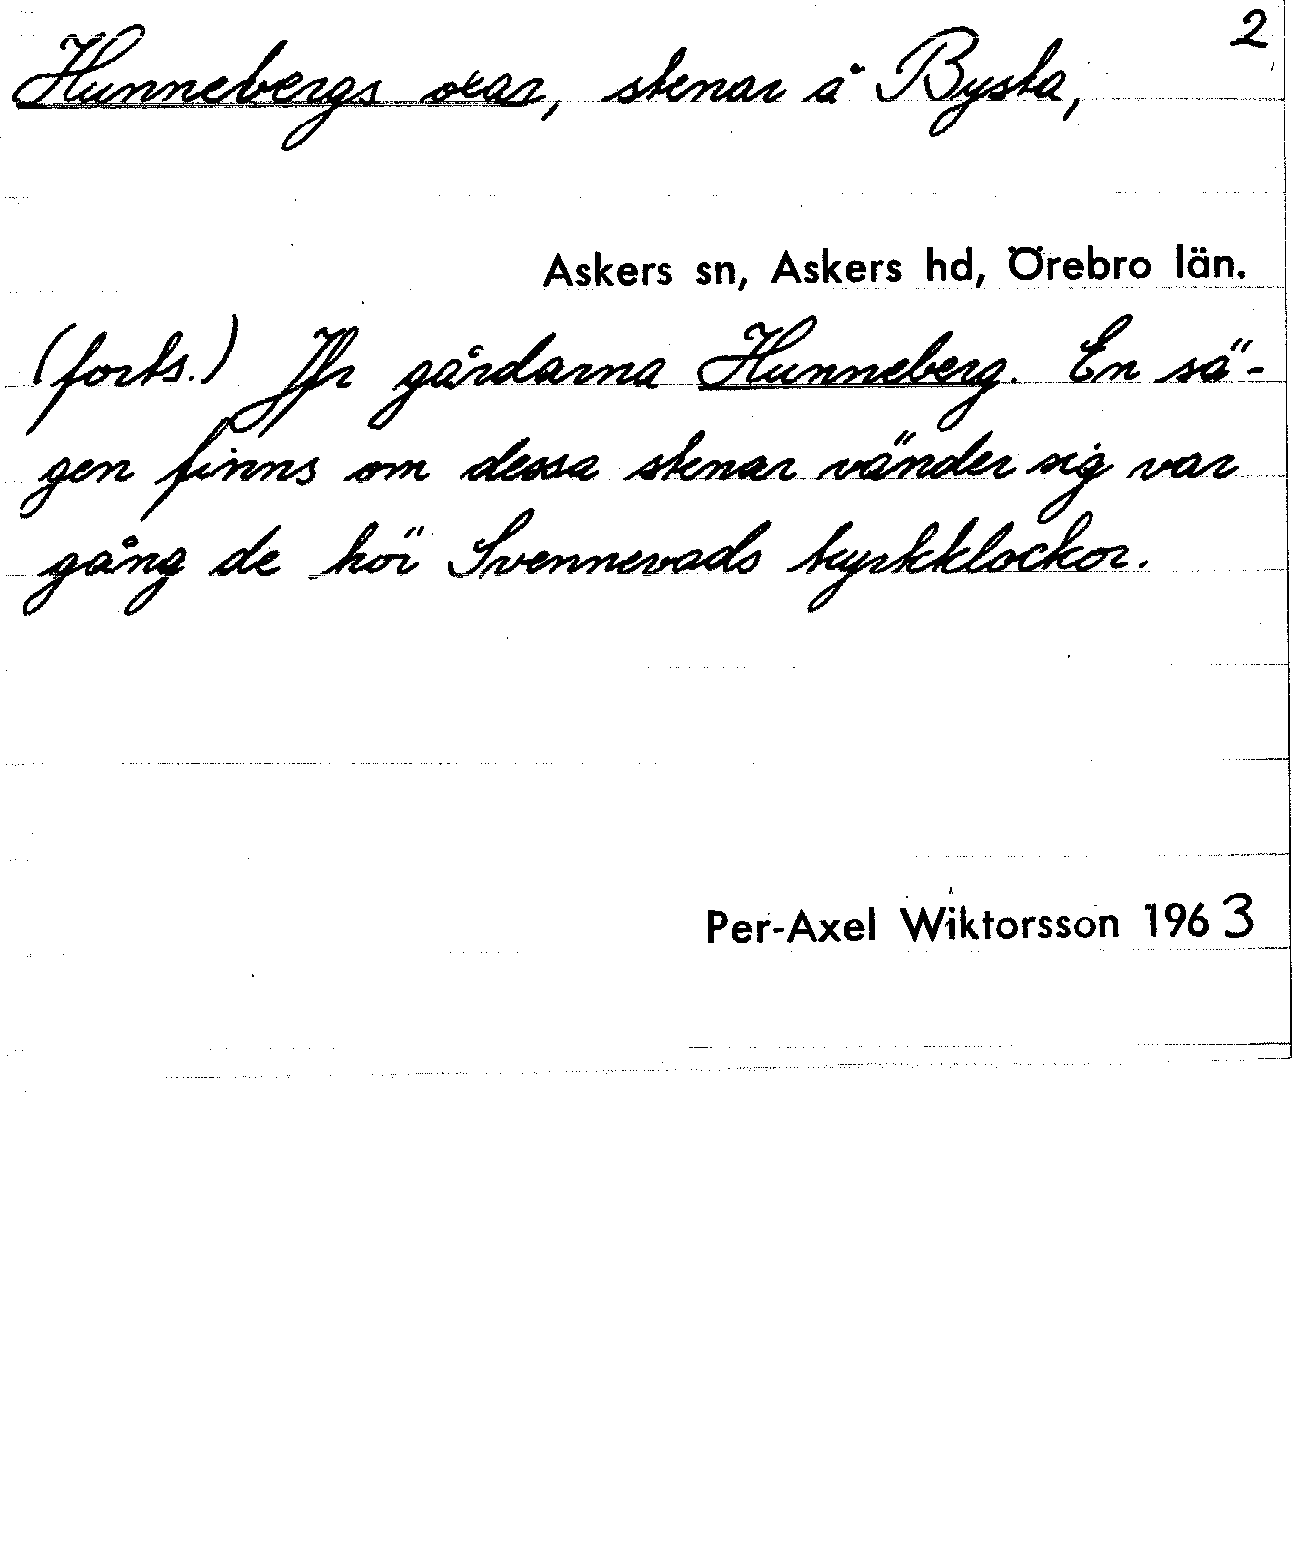 2
Hunnebergs oxar, stenar å Bysta,
Askers sn, Askers hd, Örebro län.
(forts.) Jfr gårdarna Hunneberg. En sä-
gen finns om dessa stenar vänder sig var
gång de hör Svennevads kyrkklockor.
Per-Axel Wiktorsson 1963